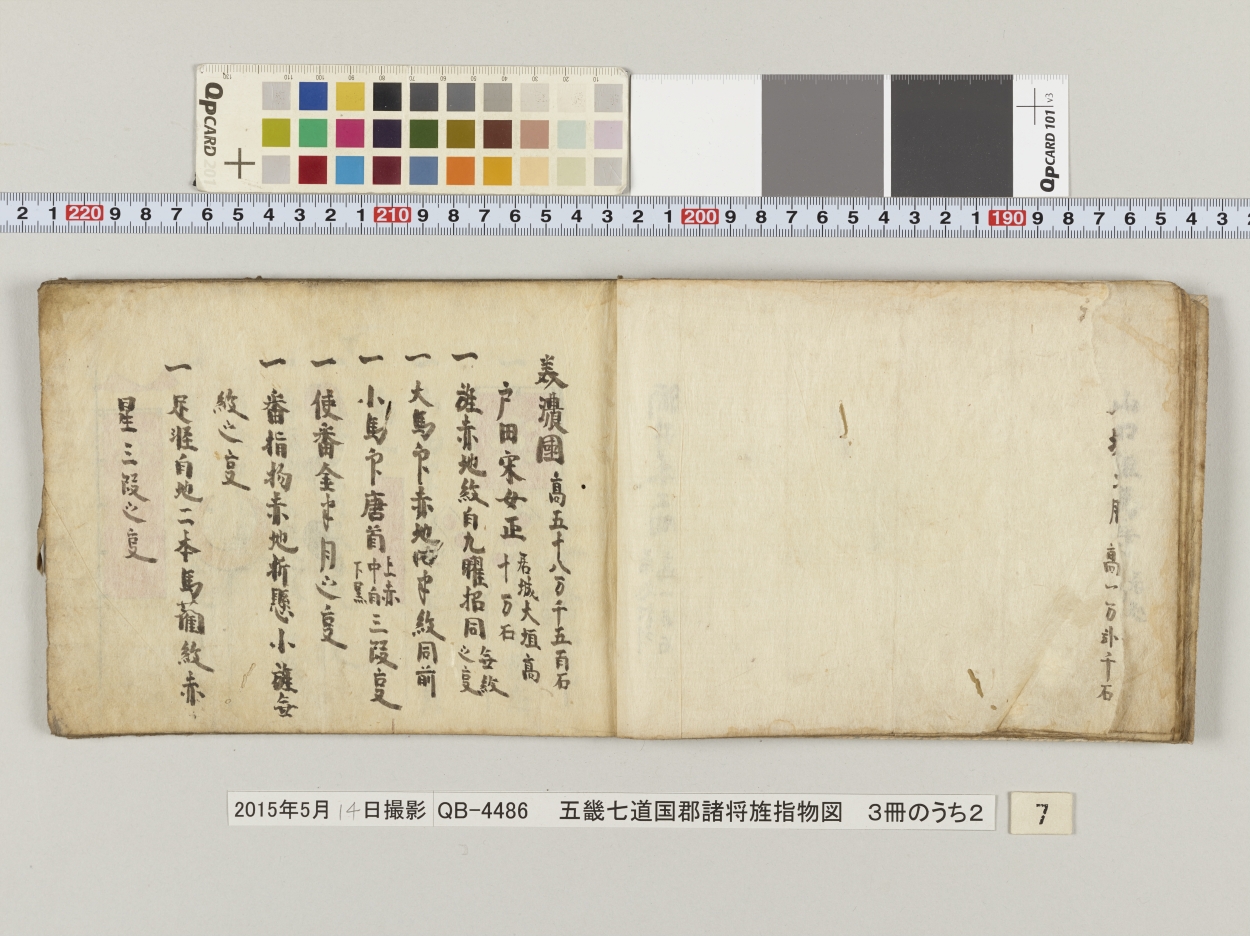 QPCARD 201
QPCARD 101 v3
2 1 220 9 8 7 6 5 4 3 2 1 210 9 8 7 6 5 4 3 2 1 200 9 8 7 6 5 4 3 2 1 190 9 8 7 6 5 4 3
高一万 千石
美濃國 高五十八万千五百石
戸田采女正 居城大垣 高十万石
一 旌赤地紋白九曜招同 無紋之㕝
一 大馬印赤地 紋同前
一 小馬印唐首 上赤 中白 下黒 三段㕝
一 使番金半月之㕝
一 番指物赤地折懸小旌無
紋之㕝
一 足軽白地二本馬藺紋赤
星三段之㕝
2015年5月14日撮影
QB-4486 五畿七道国郡諸将旌指物図 3冊のうち2
7